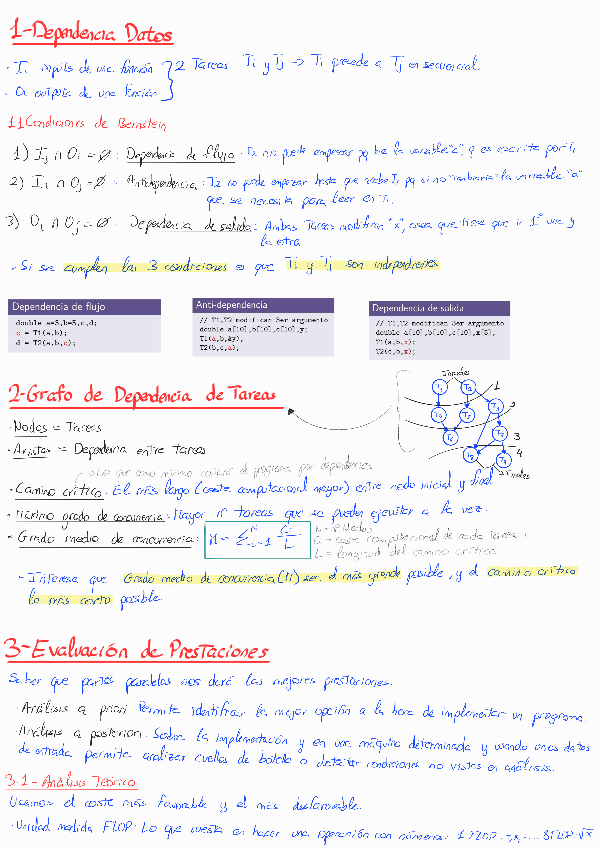 1-Dependencia Datos
· Ii inputs de una función } 2 Tareas Ti y Tj -> Ti precede a Tj en secuencial.
· Oi outputs de una función
1.1 Condiciones de Bernstein
1) Ij ∩ Oi = ∅ : Dependencia de flujo. T2 no puede empezar pq lee la variable "c", q es escrita por T1
2) Ii ∩ Oj = ∅ : Antidependencia: T2 no puede empezar hasta que acabe T1 pq si no "cambiaria" la variable "a"
que se necesita para leer en T1.
3) Oi ∩ Oj = ∅ : Dependencia de salida: Ambas Tareas modifican "x", que tiene que ir 1º una y
la otra
· Si se cumplen las 3 condiciones es que Ti y Tj son independientes
Dependencia de flujo
double a=3,b=5,c,d;
c = T1(a,b);
d = T2(a,b,c);
Anti-dependencia
// T1,T2 modifican 3er argumento
double a[10],b[10],c[10],y;
T1(a,b,&y);
T2(b,c,a);
Dependencia de salida
// T1,T2 modifican 3er argumento
double a[10],b[10],c[10],x[5],
T1(a,b,x);
T2(c,b,x);
2-Grafo de Dependencia de Tareas
Iniciales
1
2
3
4
Finales
· Nodos = Tareas
· Aristas := Dependencia entre tareas
Lo que como mínimo costará el programa por dependencias
· Camino crítico. El más largo (coste computacional mayor) entre nodo inicial y final
· Máximo grado de concurrencia: Mayor nº tareas que se pueden ejecutar a la vez.
· Grado medio de concurrencia: M = Σ i=1 N Ci / L
N = nº Nodos
Ci = coste computacional de cada tarea i
L = longitud del camino crítico
- Interesa que Grado medio de concurrencia (M) sea el más grande posible, y el camino crítico
lo más corto posible.
3-Evaluación de Prestaciones
Saber que partes paralelas nos dará las mejores prestaciones.
· Análisis a priori Permite identificar la mejor opción a la hora de implementar un programa.
· Análisis a posteriori. Sobre la implementación y en una máquina determinada y usando unos datos
de entrada permite analizar cuellos de botella o detectar condiciones no vistas en análisis.
3.1- Análisis Teórico
Usamos el coste más favorable y el más desfavorable.
· Unidad medida FLOP. Lo que cuesta en hacer una operación con números. 1 FLOP 8FLOP √x